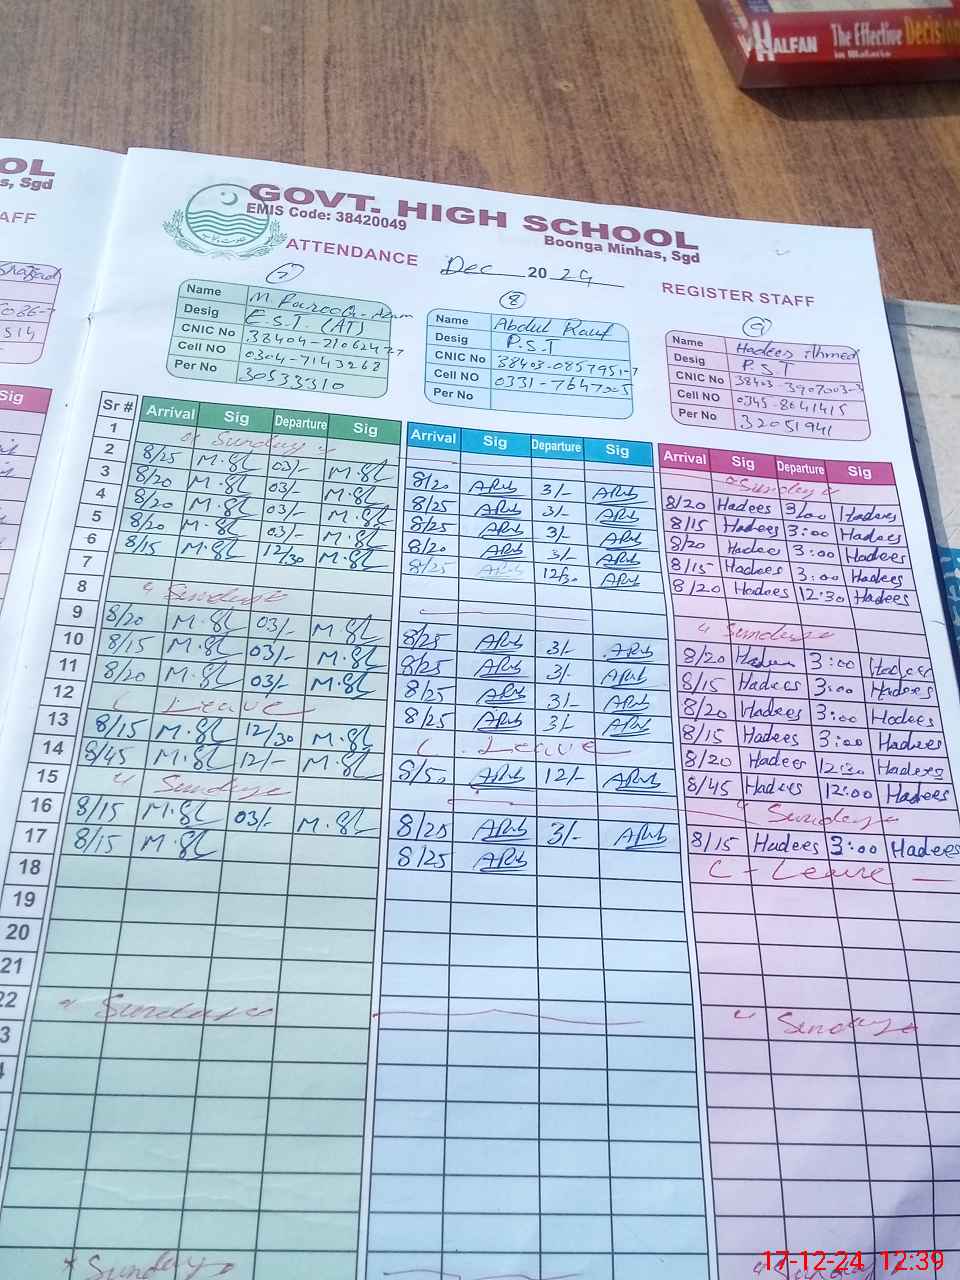 HALFAN The Effective Decision
in Matarie
OL
s, Sgd
AFF
GOVT. HIGH SCHOOL
EMIS Code: 38420049
Boonga Minhas, Sgd
ATTENDANCE Dec 2024 REGISTER STAFF
7 8 9
Name M.
Desig E.S.T. (AT)
CNIC No 38404-21062427
Cell NO 0304-7143268
Per No 30533310
Name Abdul Rauf
Desig P.S.T
CNIC No 38403-0857951-7
Cell NO 0331-7647005
Per No
Name Hadees Ahmed
Desig P.S.T
CNIC No 38403-3907003-3
Cell NO 0345-8641415
Per No 32051941
Sig
Sr # Arrival Sig Departure Sig Arrival Sig Departure Sig Arrival Sig Departure Sig
1 " Sunday " " Sunday "
2 8/25 03/- 8/20 3/- 8/20 Hadees 3/00 Hadees
3 8/20 03/- 8/25 3/- 8/15 Hadees 3:00 Hadees
4 8/20 03/- 8/25 3/- 8/20 Hadees 3:00 Hadees
5 8/20 03/- 8/20 3/- 8/15 Hadees 3:00 Hadees
6 8/15 12/30 8/25 12/30 8/20 Hadees 12:30 Hadees
7
8 " Sunday " " Sunday "
9 8/20 03/- 8/25 3/- 8/20 Hadees 3:00 Hadees
10 8/15 03/- 8/25 3/- 8/15 Hadees 3:00 Hadees
11 8/20 03/- 8/25 3/- 8/20 Hadees 3:00 Hadees
12 C Leave 8/25 3/- 8/15 Hadees 3:00 Hadees
13 8/15 12/30 C. Leave 8/20 Hadees 12:30 Hadees
14 8/45 12/- 8/50 12/- 8/45 Hadees 12:00 Hadees
15 " Sunday " " Sunday "
16 8/15 03/- 8/25 3/- 8/15 Hadees 3:00 Hadees
17 8/15 8/25 C - Leave -
18
19
20
21
22 " Sunday " " Sunday "
3
Sunday " Sunday
17-12-24 12:39